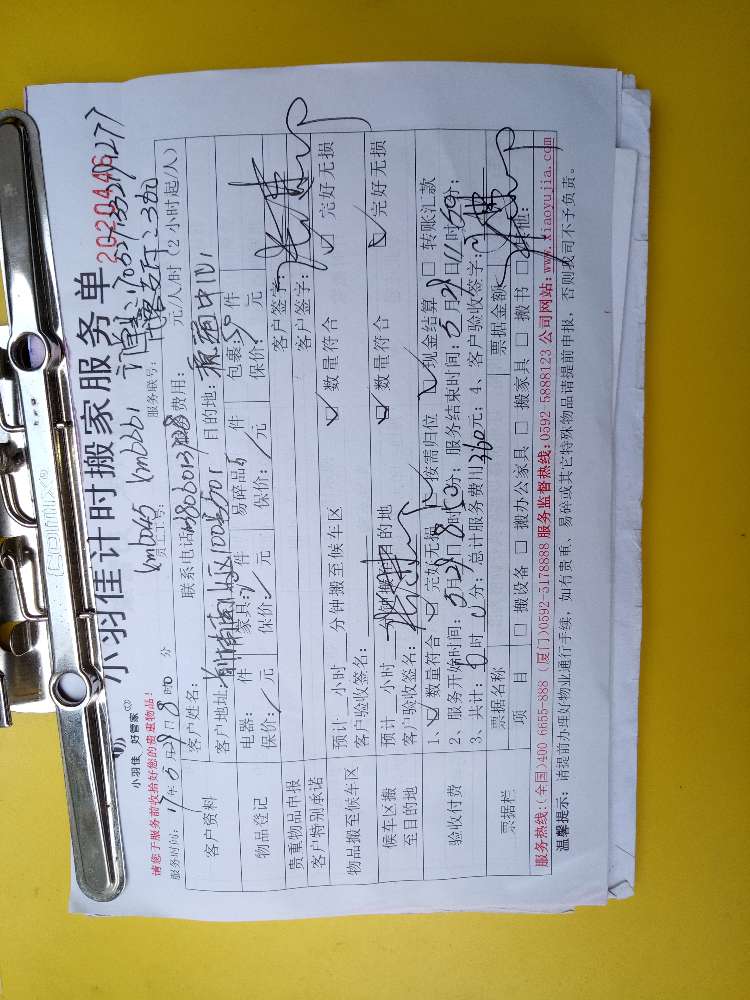 小羽佳计时搬家服务单 2020446
小羽佳 好管家
请您于服务前收拾好您的贵重物品!
员工工号: 服务联号:
服务时间: 17年5月28日8时0分 费用: 元/人/时(2小时起/人)
客户资料
客户姓名: 联系电话:
客户地址: 目的地:
物品登记
电器: 件 家具: 件 易碎品 件 包裹: 件
保价: 元 保价: 元 保价: 元 保价: 元
贵重物品申报 客户签字:
客户特别承诺 客户签字:
物品搬至候车区
预计 小时 分钟搬至候车区 数量符合 完好无损
客户验收签名:
候车区搬至目的地
预计 小时 分钟搬至目的地 数量符合 完好无损
客户验收签名:
验收付费
1、数量符合 完好无损 按需归位 现金结算 转账汇款
2、服务开始时间: 5月28日8时0分; 服务结束时间: 5月28日11时50分;
3、共计: 时 分; 总计服务费用360元; 4、客户验收签字:
票据栏
票据名称 票据金额
项目 搬设备 搬办公家具 搬家具 搬书 其他:
服务热线:(全国)400 6655-888 (厦门)0592-5178888 服务监督热线:0592 5888123 公司网站:www.xiaoyujia.com
温馨提示: 请提前办理好物业通行手续, 如有贵重、易碎或其它特殊物品请提前申报, 否则我司不予负责。